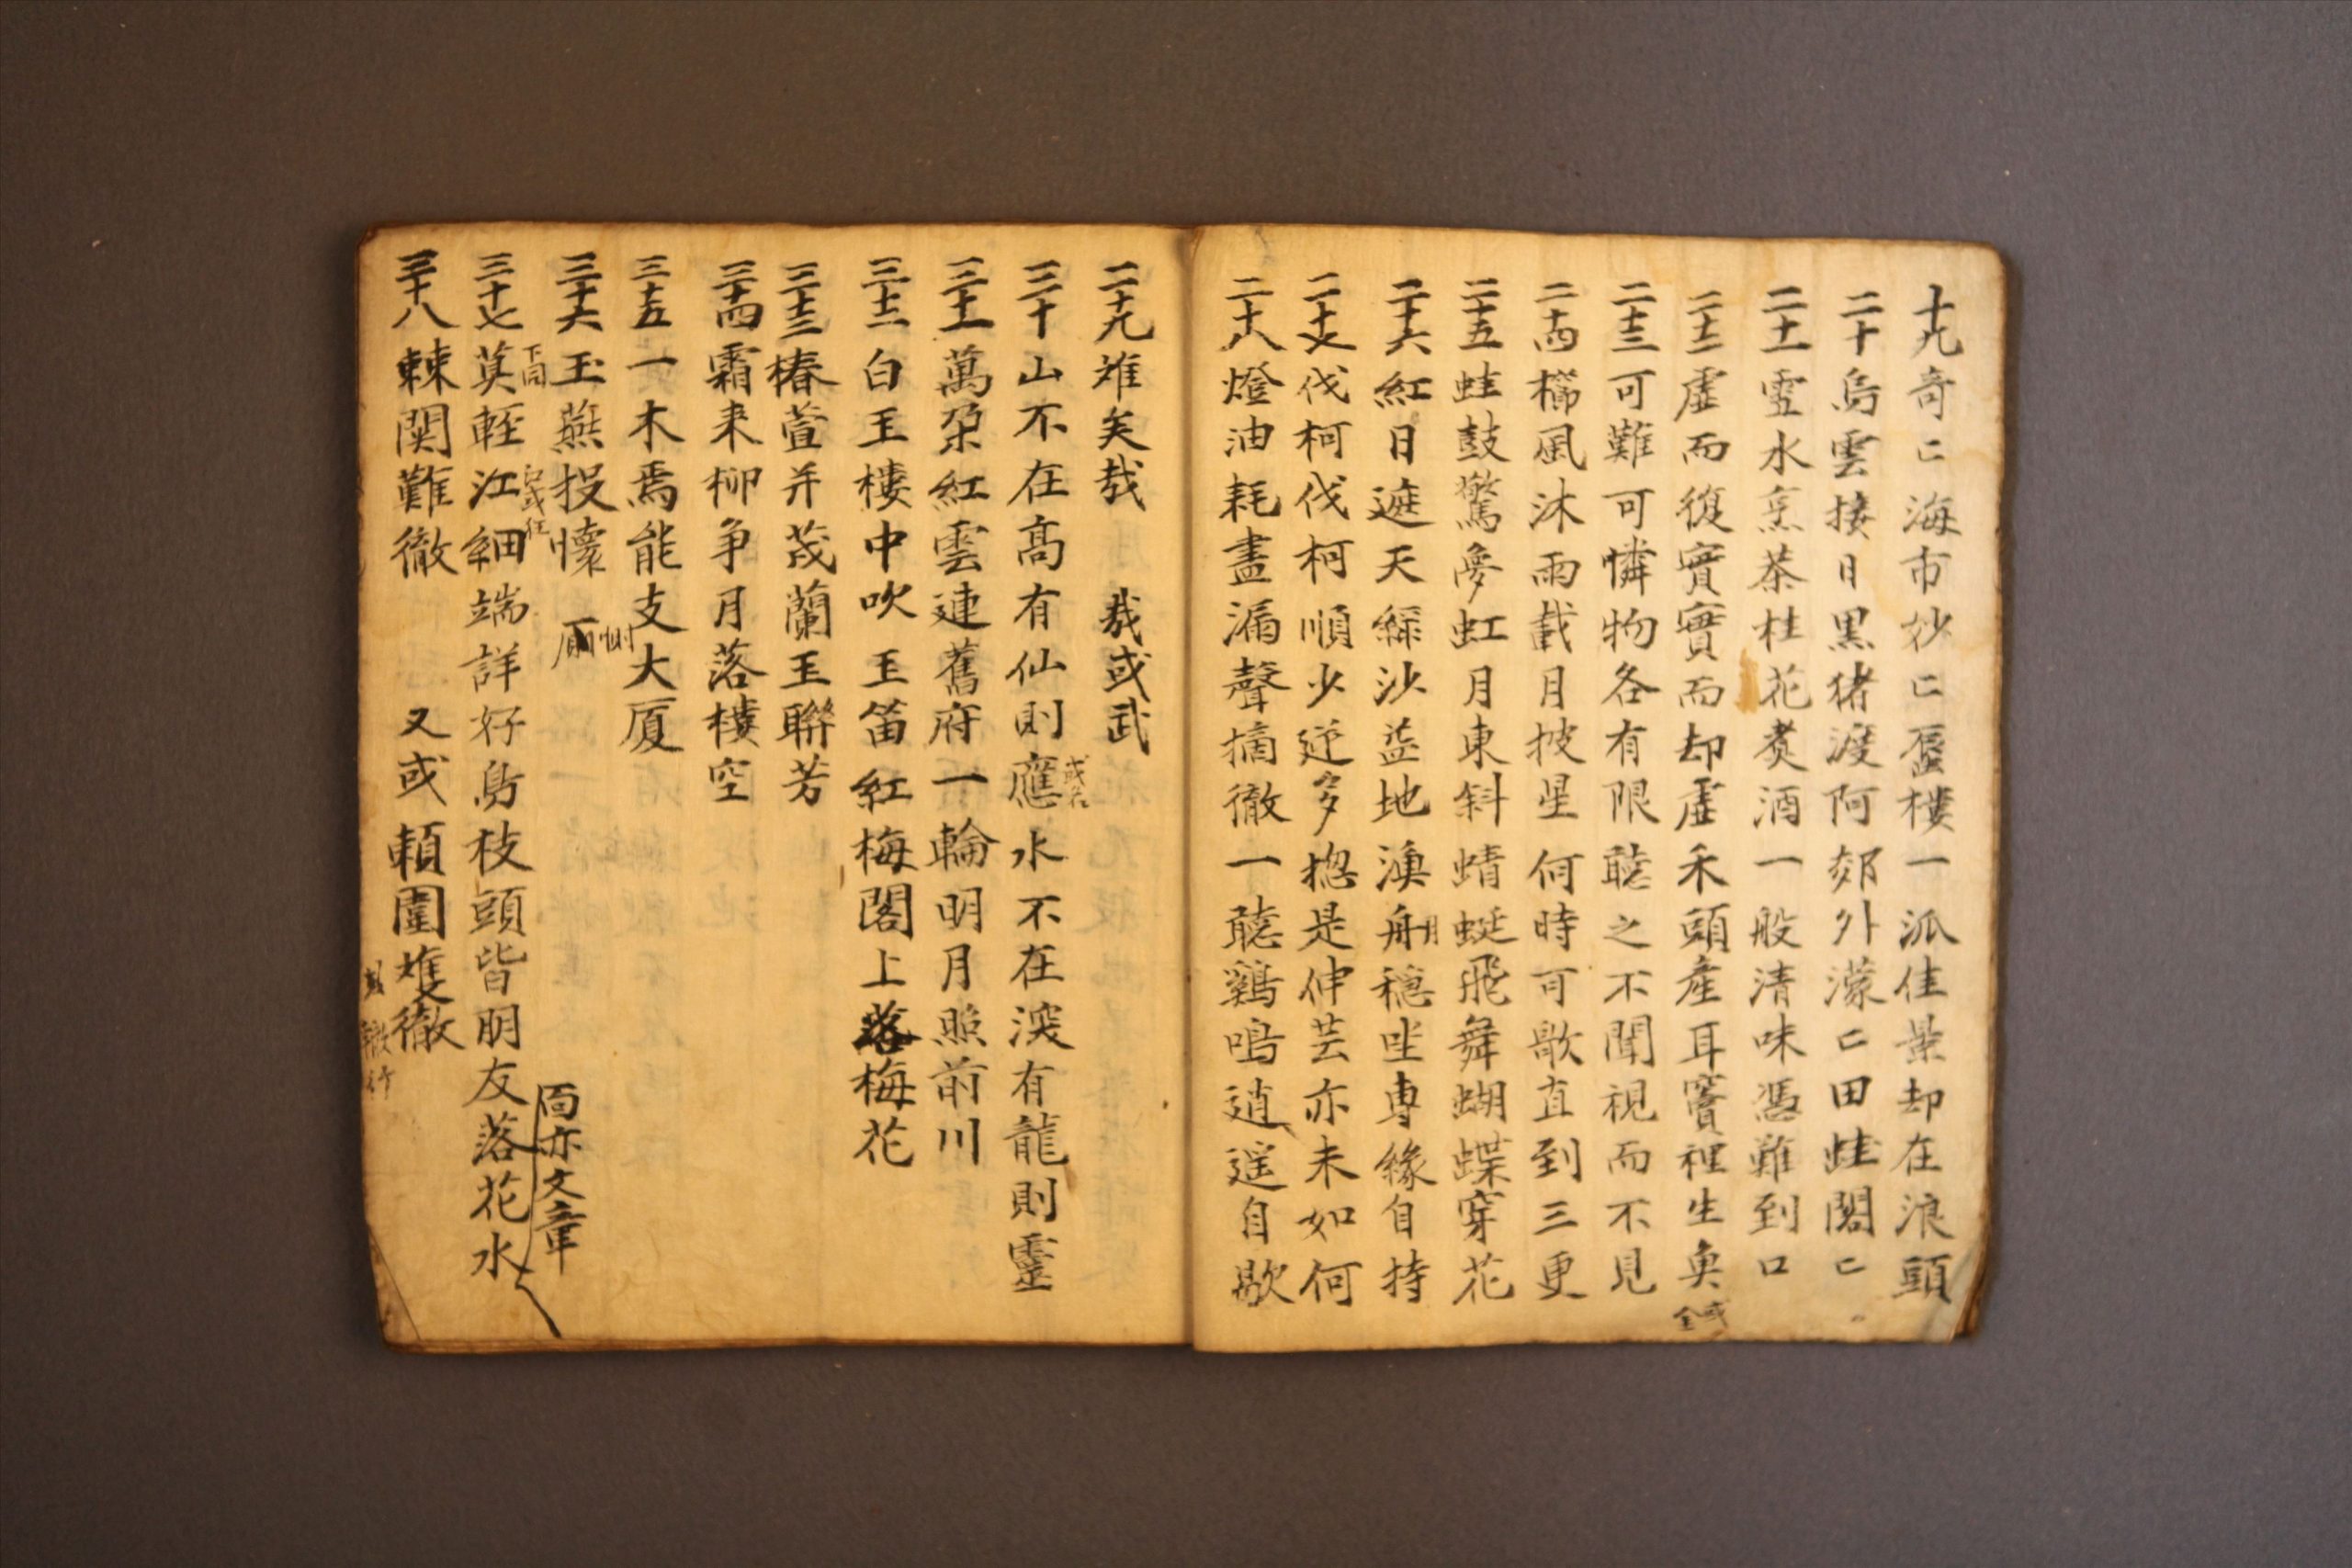 十九奇〻海市妙〻蜃樓一派佳景却在浪頭
二十烏雲接日黒猪渡阿郊外濛〻田蛙閣〻
二十一雪水烹茶桂花煑酒一般清味憑難到口
二十二虛而復實實而却虛禾頭產耳竇裡生臭
或全
二十三可難可憐物各有限聽之不聞視而不見
二十四櫛風沐雨戴月披星何時可歇直到三更
二十五蛙鼓驚夢虹月東斜蜻蜓飛舞蝴蝶穿花
二十六紅日遮天綠沙盖地漁舟穩坐專緣自持
二十七伐柯伐柯順少逆多揔是伸芸亦未如何
二十八燈油耗盡漏聲摘徹一聽鷄鳴逍遥自歇
二十九难矣哉 㦲或武
三十山不在高有仙則應水不在深有龍則靈
或名
三十一萬朶紅雲連舊府一輪明月照前川
三十二白玉樓中吹玉笛紅梅閣上落梅花
三十三椿萱并茂蘭玉聯芳
三十四霜来柳争月落樓空
三十五一木焉能支大厦
三十六玉燕投懷
下同
面亦文章
三十七莫輕江細端詳好鳥枝頭皆朋友落花水
三十八棘闈難徹 又或賴圍隻徹